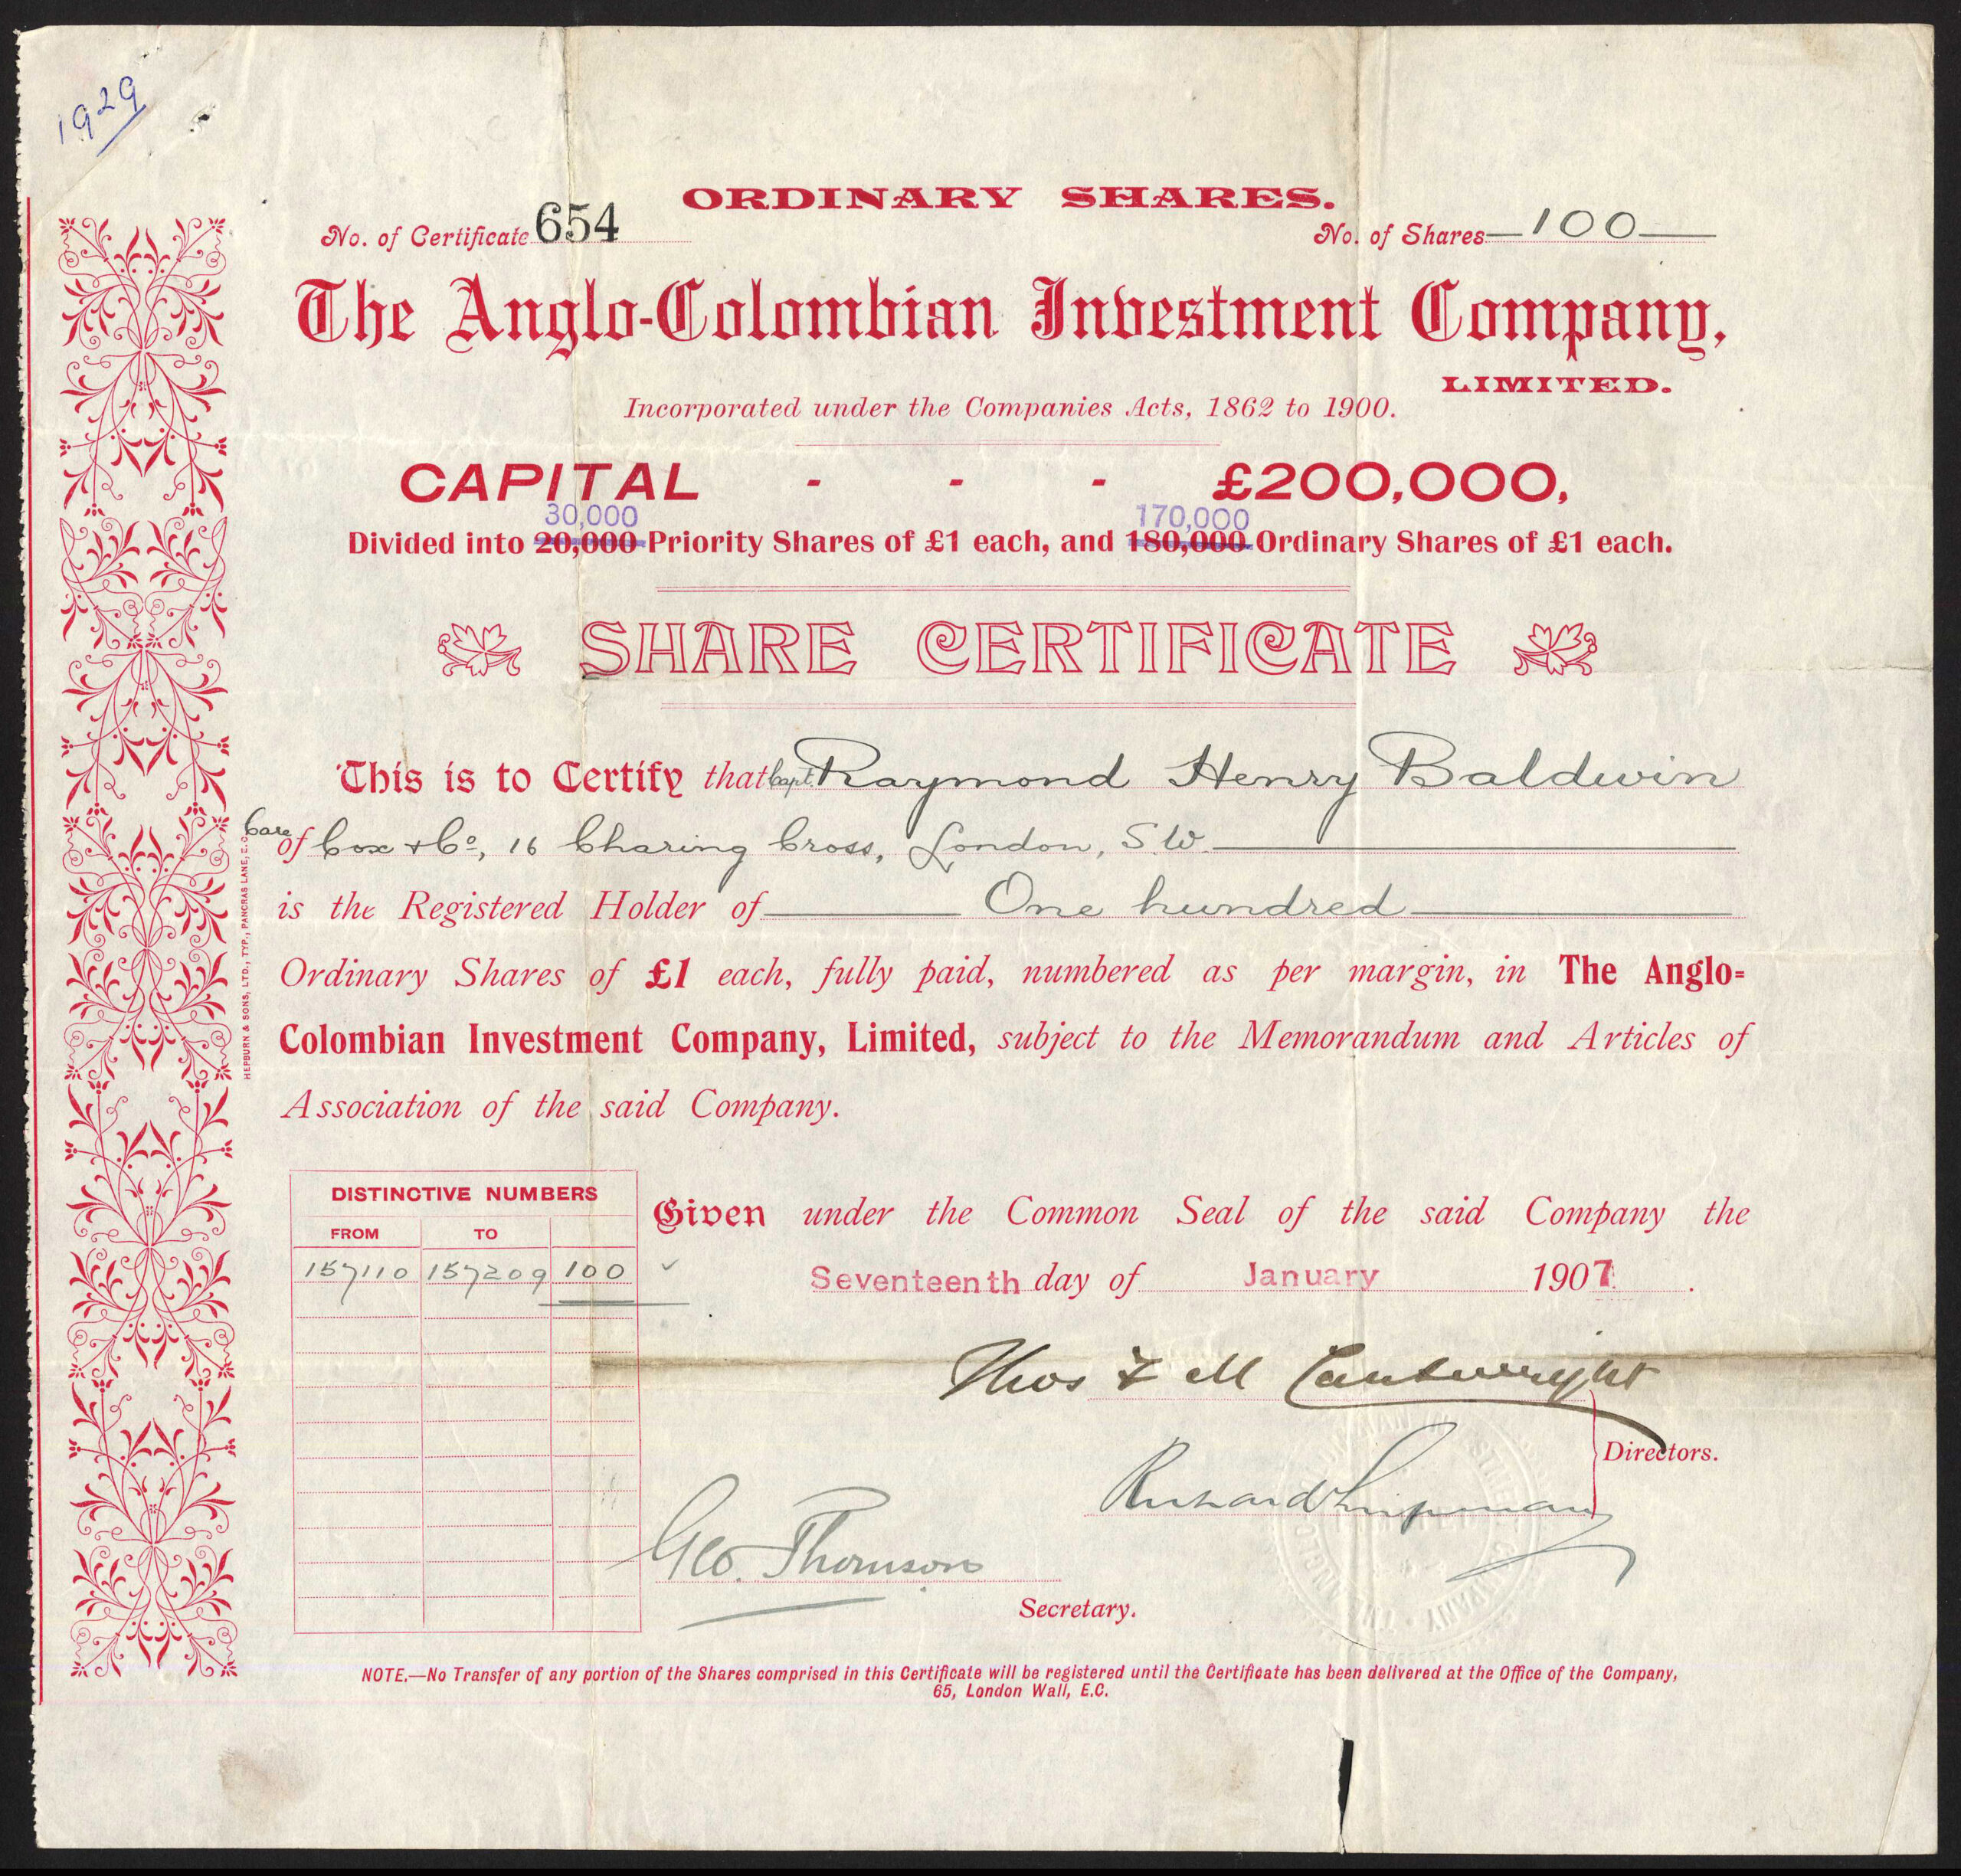 1929
ORDINARY SHARES.
No. of Certificate 654
No. of Shares 100
The Anglo-Colombian Investment Company,
LIMITED.
Incorporated under the Companies Acts, 1862 to 1900.
CAPITAL - - - £200,000,
30,000 170,000
Divided into 20,000 Priority Shares of £1 each, and 180,000 Ordinary Shares of £1 each.
SHARE CERTIFICATE
This is to Certify that Capt. Raymond Henry Baldwin
Care of Cox & Co, 16 Charing Cross, London, S.W.
is the Registered Holder of One hundred
Ordinary Shares of £1 each, fully paid, numbered as per margin, in The Anglo-
Colombian Investment Company, Limited, subject to the Memorandum and Articles of
Association of the said Company.
HEPBURN & SONS, LTD., TYP., PANCRAS LANE, E.C.
DISTINCTIVE NUMBERS
FROM TO
157110 157209 100
Given under the Common Seal of the said Company the
Seventeenth day of January 1907.
Thos & M Cartwright
Directors.
Richard
Geo. Thomson
Secretary.
NOTE.—No Transfer of any portion of the Shares comprised in this Certificate will be registered until the Certificate has been delivered at the Office of the Company,
65, London Wall, E.C.